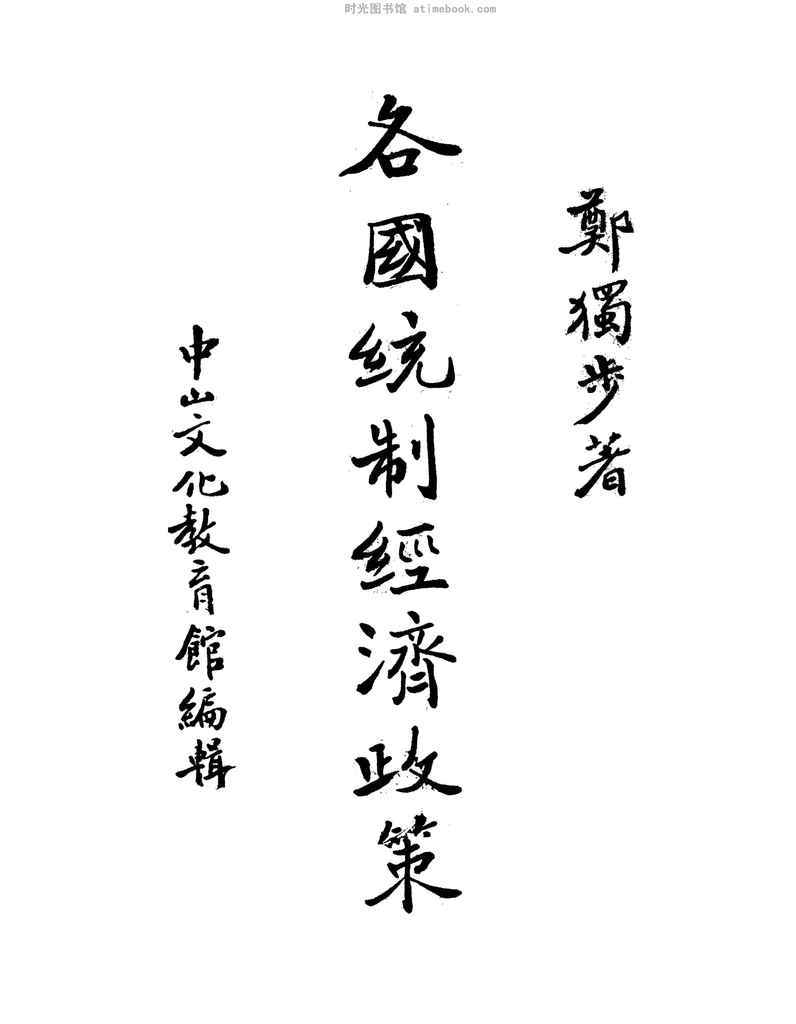 时光图书馆 atimebook.com
鄭獨步著
各國統制經濟政策
中山文化教育館編輯